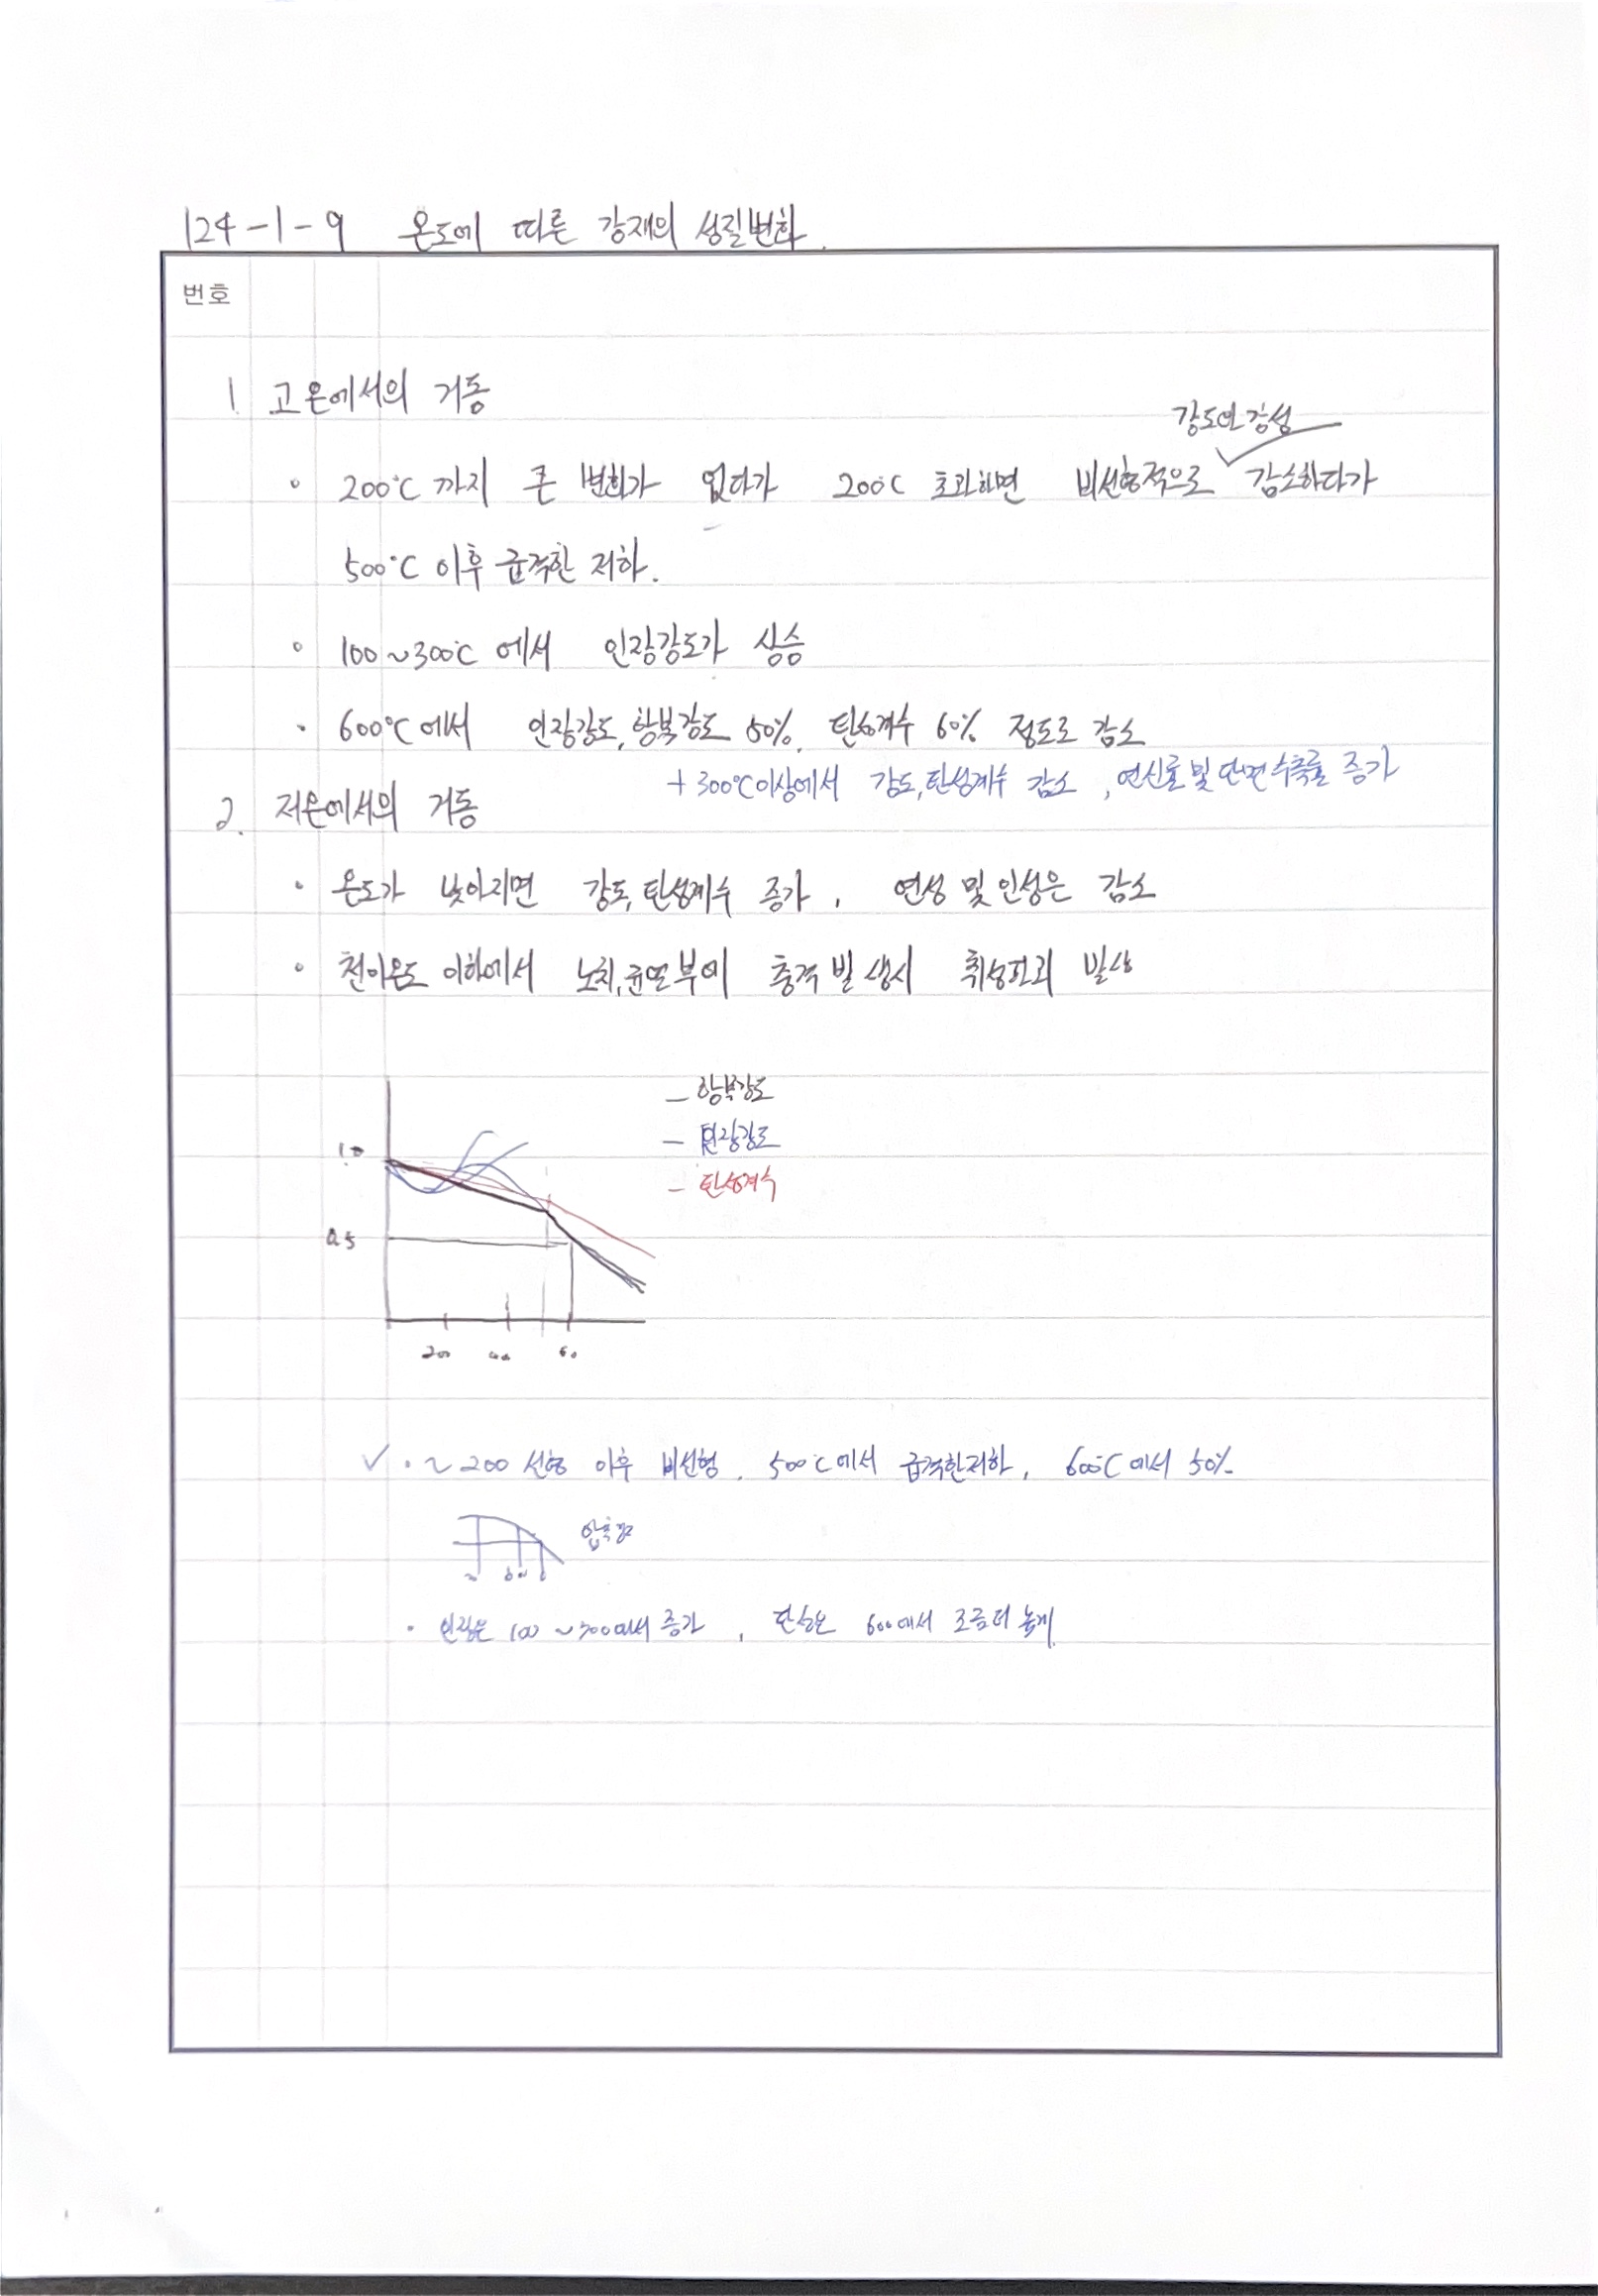 124-1-9 온도에 따른 강재의 성질변화.
번호
1. 고온에서의 거동
강도와 강성
◦ 200℃ 까지 큰 변화가 없다가 200℃ 초과하면 비선형적으로 감소하다가
500℃ 이후 급격한 저하.
◦ 100~300℃ 에서 인장강도가 상승
• 600℃에서 인장강도, 항복강도 50%, 탄성계수 60% 정도로 감소
+ 300℃이상에서 강도, 탄성계수 감소, 연신률 및 단면수축률 증가
2. 저온에서의 거동
• 온도가 낮아지면 강도, 탄성계수 증가, 연성 및 인성은 감소
• 천이온도 이하에서 노치, 균열부에 충격 발생시 취성파괴 발생
— 항복강도
— 인장강도
— 탄성계수
1.0
0.5
200
✓ • ~200 선형 이후 비선형, 500℃에서 급격한저하, 600℃에서 50%
• 인장은 100~300에서 증가, 탄성은 600에서 조금더 높게